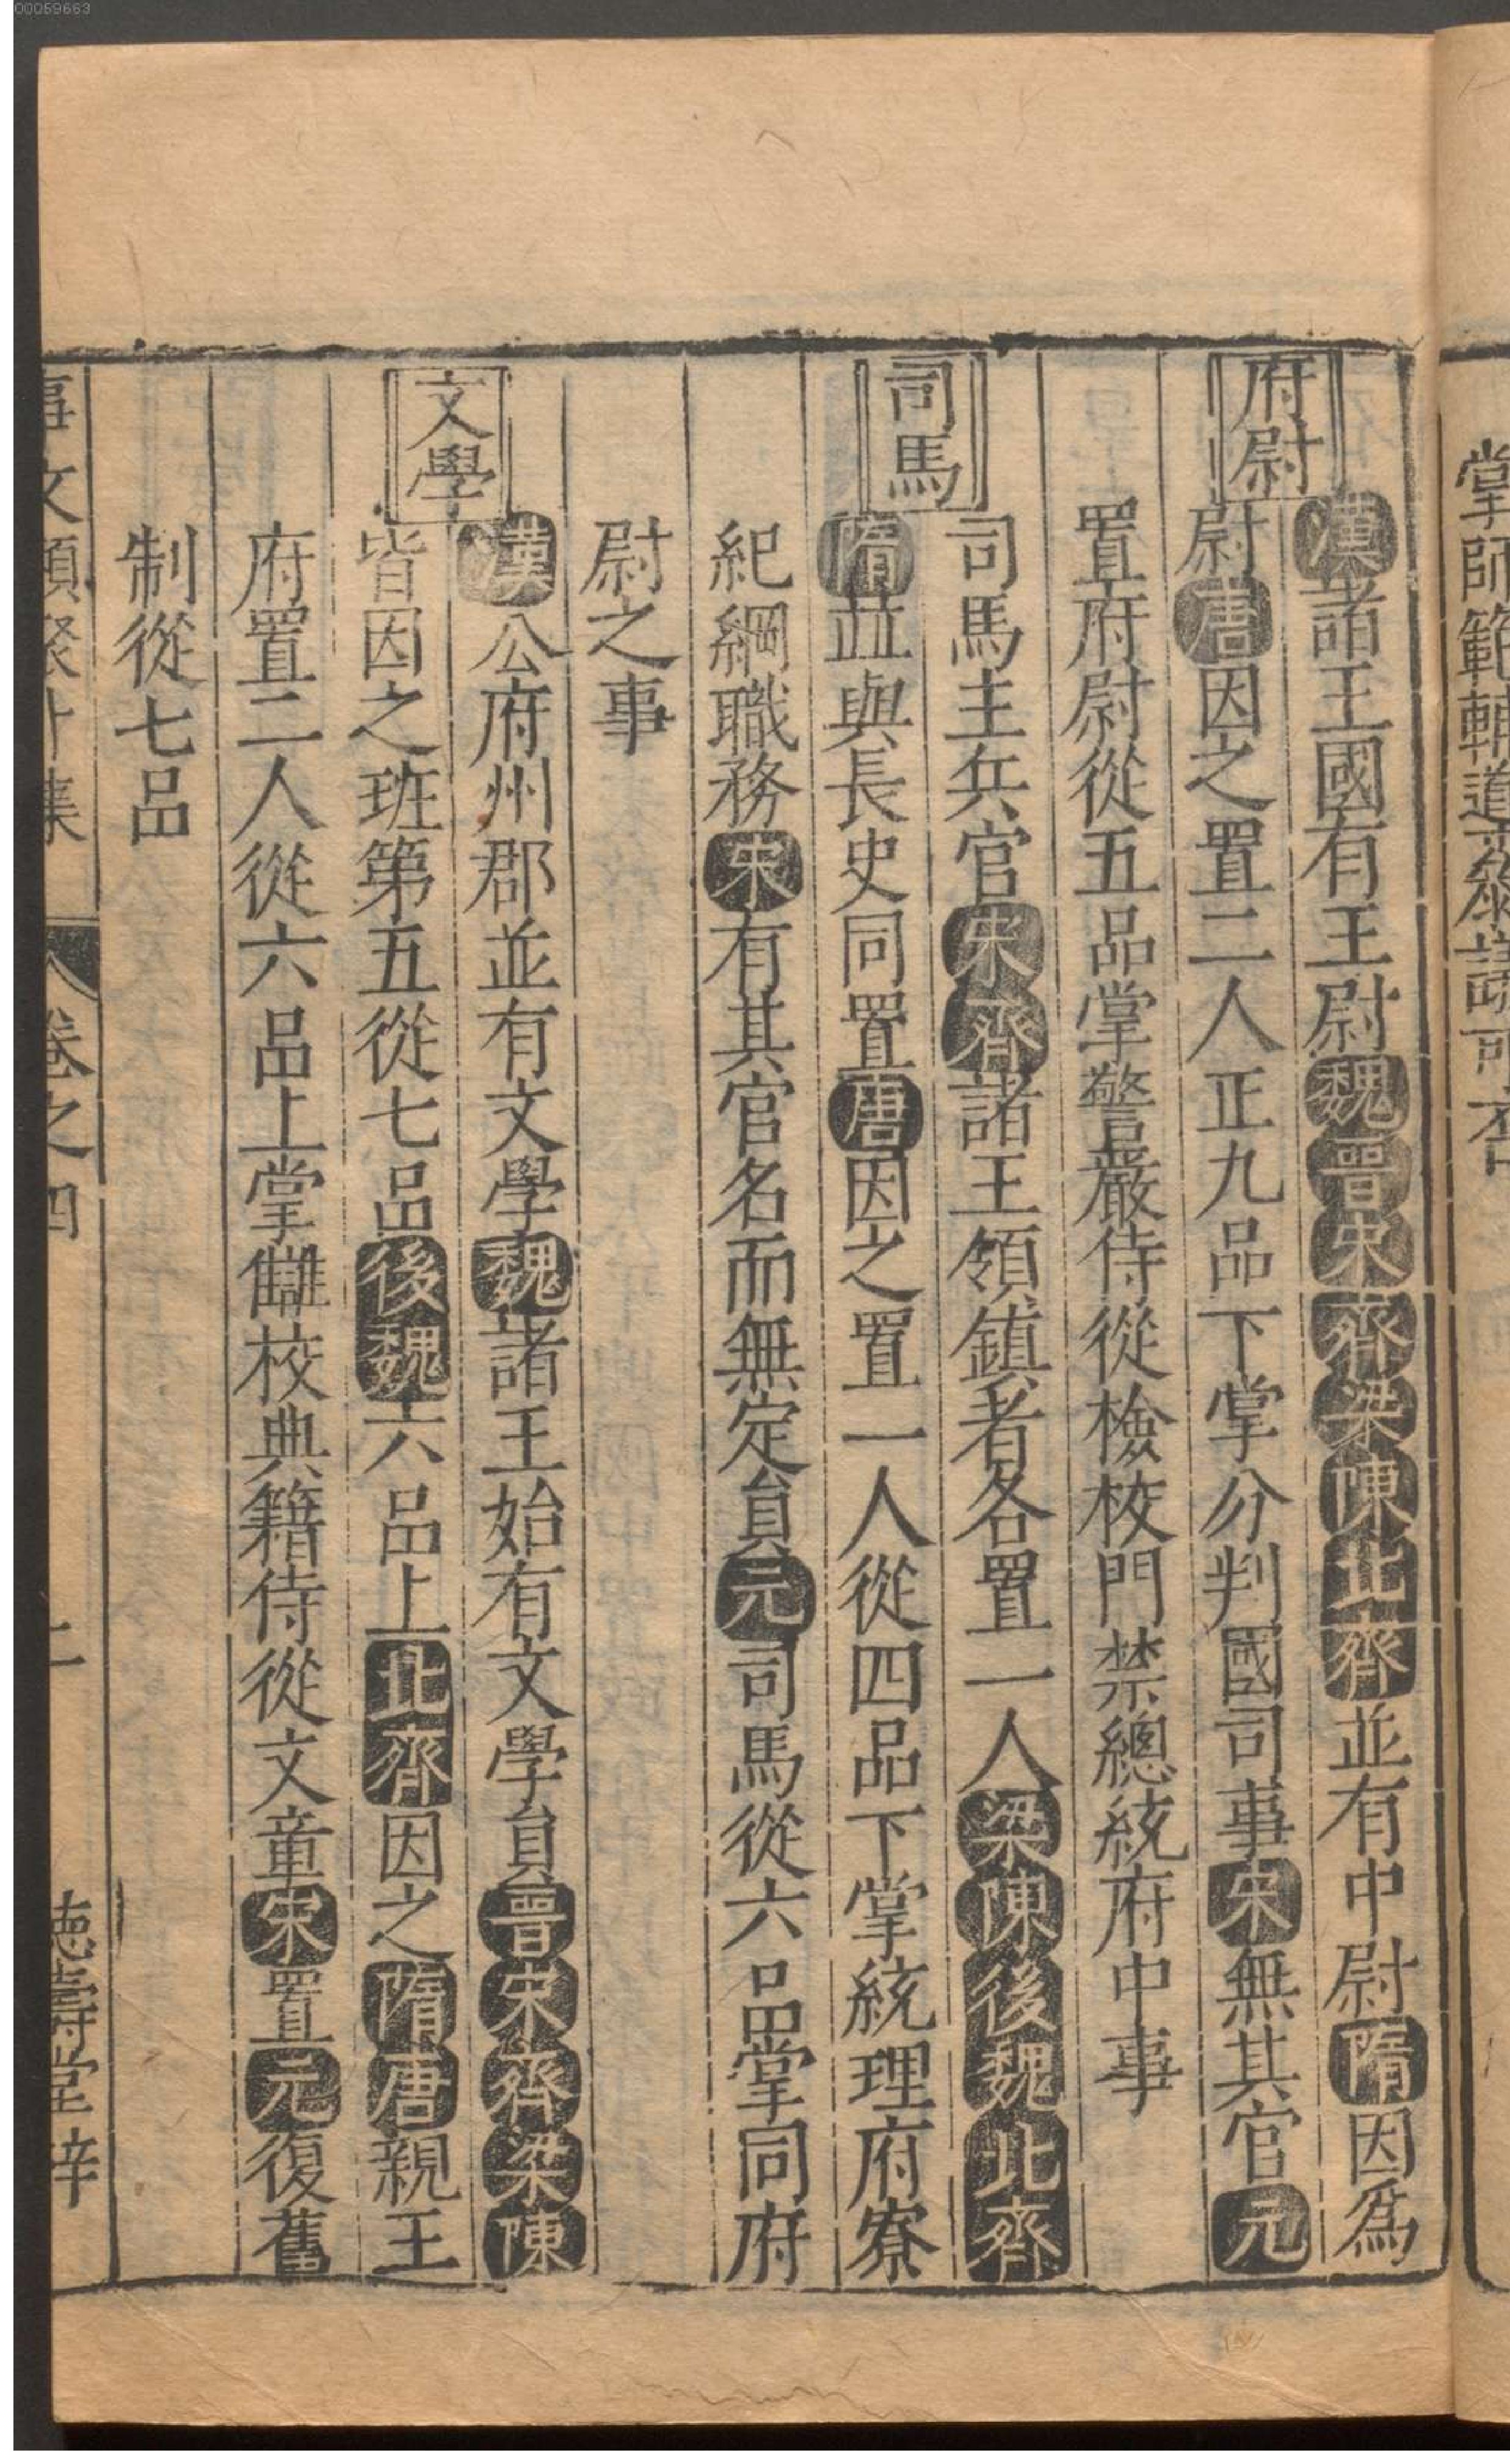 00059663
掌師範輔道參議可否
府尉
漢諸王國有王尉魏晉宋齊梁陳北齊並有中尉隋因爲
尉唐因之置二人正九品下掌分判國司事宋無其官元
置府尉從五品掌警嚴侍從檢校門禁總統府中事
司馬
司馬主兵官宋齊諸王領鎮者各置一人梁陳後魏北齊
隋並與長史同置唐因之置一人從四品下掌統理府寮
紀綱職務宋有其官名而無定員元司馬從六品掌同府
尉之事
文學
漢公府州郡並有文學魏諸王始有文學員晉宋齊梁陳
皆因之班第五從七品後魏六品上北齊因之隋唐親王
府置二人從六品上掌讎校典籍侍從文章宋置元復舊
制從七品
事文類聚廾集 卷之四 二 德壽堂梓